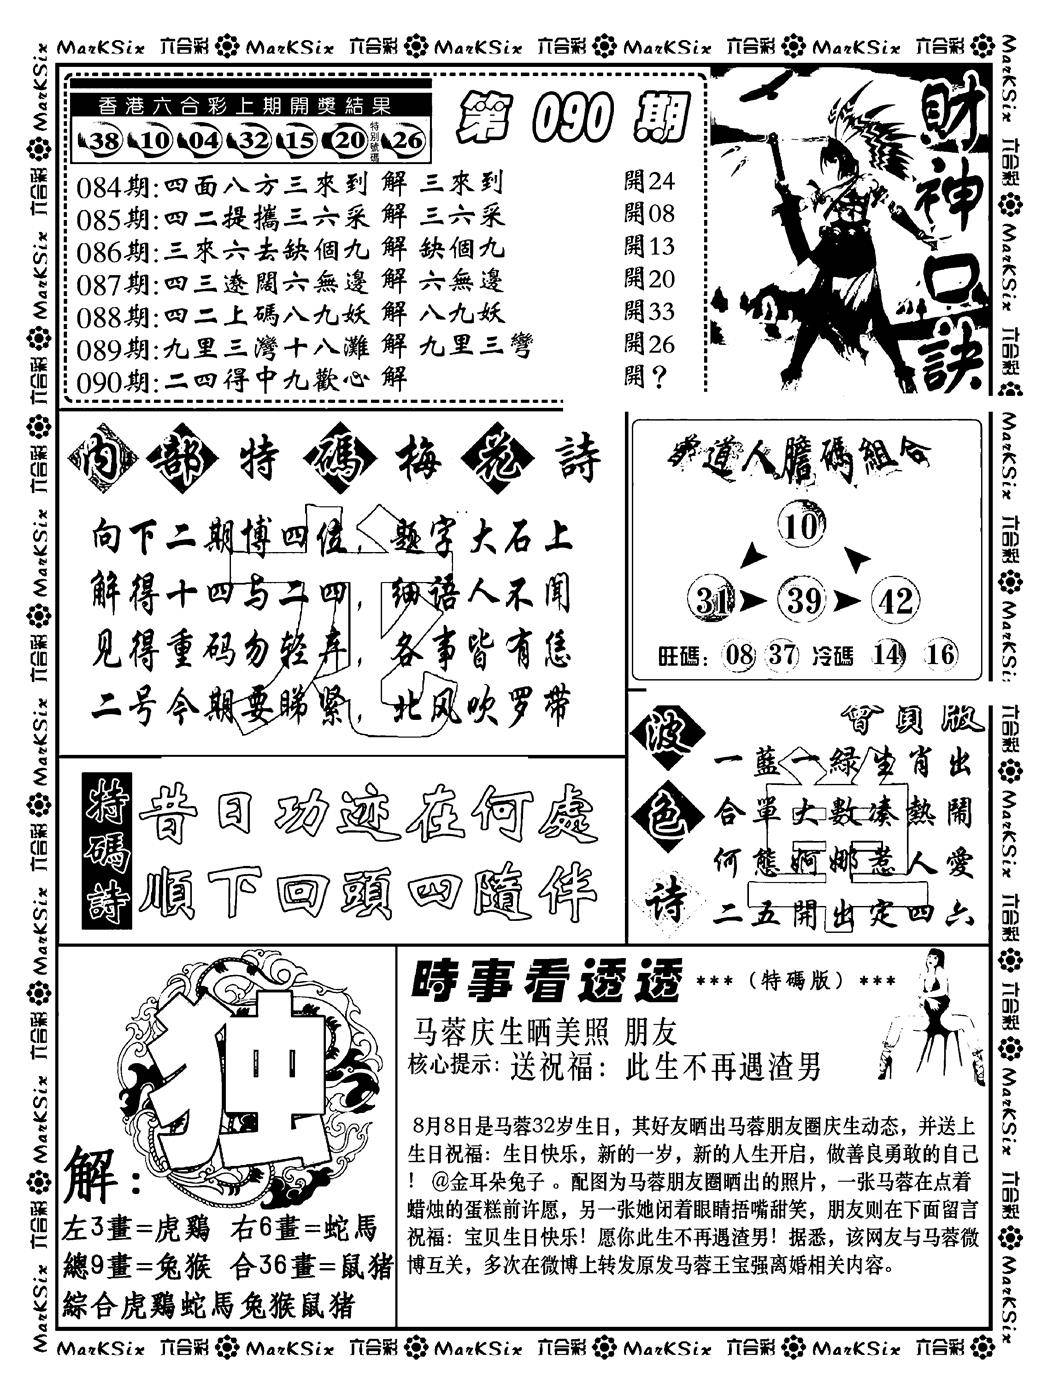 MarKSix 六合彩 MarKSix 六合彩 MarKSix 六合彩 MarKSix 六合彩 MarKSix 六合彩
香港六合彩上期開獎結果
38 10 04 32 15 20 特別號碼 26
第 090 期
084期:四面八方三來到 解 三來到 開24
085期:四二提攜三六采 解 三六采 開08
086期:三來六去缺個九 解 缺個九 開13
087期:四三遼闊六無邊 解 六無邊 開20
088期:四二上碼八九妖 解 八九妖 開33
089期:九里三灣十八灘 解 九里三彎 開26
090期:二四得中九歡心 解 開?
財神口訣
內部特碼梅花詩
向下二期博四位，题字大石上
解得十四与二四，细语人不闻
见得重码勿轻弃，各事皆有恁
二号今期要睇紧，北风吹罗带
道人膽碼組合
10
31 39 42
旺碼: 08 37 冷碼 14 16
曾貝版
波色诗
一藍一緑生肖出
合單大數凑熱鬧
何態婀娜惹人愛
二五開出定四六
特碼詩
昔日功迹在何處
順下回頭四隨伴
独
解:
左3畫=虎鷄 右6畫=蛇馬
總9畫=兔猴 合36畫=鼠猪
綜合虎鷄蛇馬兔猴鼠猪
時事看透透 ***（特碼版）***
马蓉庆生晒美照 朋友
核心提示: 送祝福: 此生不再遇渣男
8月8日是马蓉32岁生日，其好友晒出马蓉朋友圈庆生动态，并送上
生日祝福: 生日快乐，新的一岁，新的人生开启，做善良勇敢的自己
! @金耳朵兔子 。配图为马蓉朋友圈晒出的照片，一张马蓉在点着
蜡烛的蛋糕前许愿，另一张她闭着眼睛捂嘴甜笑，朋友则在下面留言
祝福: 宝贝生日快乐! 愿你此生不再遇渣男! 据悉，该网友与马蓉微
博互关，多次在微博上转发原发马蓉王宝强离婚相关内容。
MarKSix 六合彩 MarKSix 六合彩 MarKSix 六合彩 MarKSix 六合彩 MarKSix 六合彩